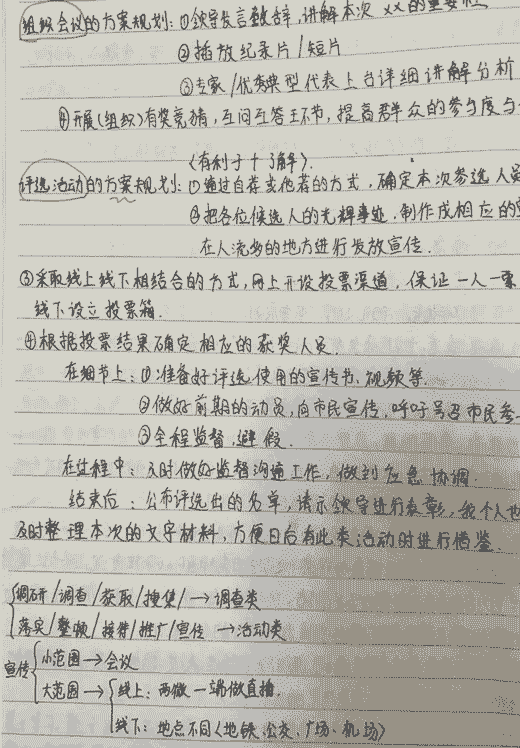 组织会议的方案规划:①领导发言致辞,讲解本次 xx的重要性
②播放纪录片/短片
③专家/优秀典型代表上台详细讲解分析
④开展(组织)有奖竞猜,互问互答环节,提高群众的参与度与
(有利于十了解).
评选活动的方案规划:①通过自荐或他荐的方式,确定本次参选人员
②把各位候选人的光辉事迹,制作成相应的
在人流多的地方进行发放宣传.
③采取线上线下相结合的方式,网上开设投票渠道,保证一人一票
线下设立投票箱.
④根据投票结果确定相应的获奖人员.
在细节上:①准备好评选使用的宣传书、视频等.
②做好前期的动员,向市民宣传,呼吁号召市民参
③全程监督,避假.
在过程中:及时做好监督沟通工作,做到应急协调.
结束后:公布评选出的名单,请示领导进行表彰,我个人也
及时整理本次的文字材料,方便日后有此类活动时进行借鉴.
调研/调查/获取/搜集/→调查类
落实/整顿/接待/推广/宣传 →活动类
宣传 小范围→会议
大范围→线上:两微一端做直播.
线下:地点不同(地铁、公交、广场、机场)